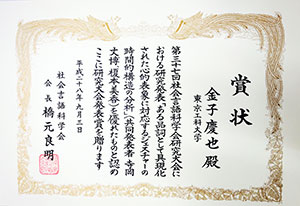 賞状
東京工科大学
金子慶也 殿
第三十七回社会言語科学会研究大会に
おける研究発表「ある品詞として具現化
された心的表象に対応するジェスチャーの
時間的構造の分析」(共同発表者 寺岡
丈博、榎本美香)を優れたものと認め
ここに研究大会発表賞を贈ります
平成二十八年九月三日
社会言語科学会
会長 橋元良明